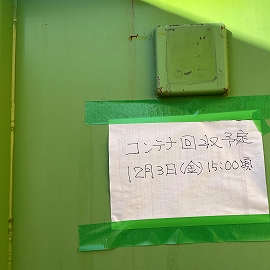 コンテナ回収予定
12月3日(金)15:00頃